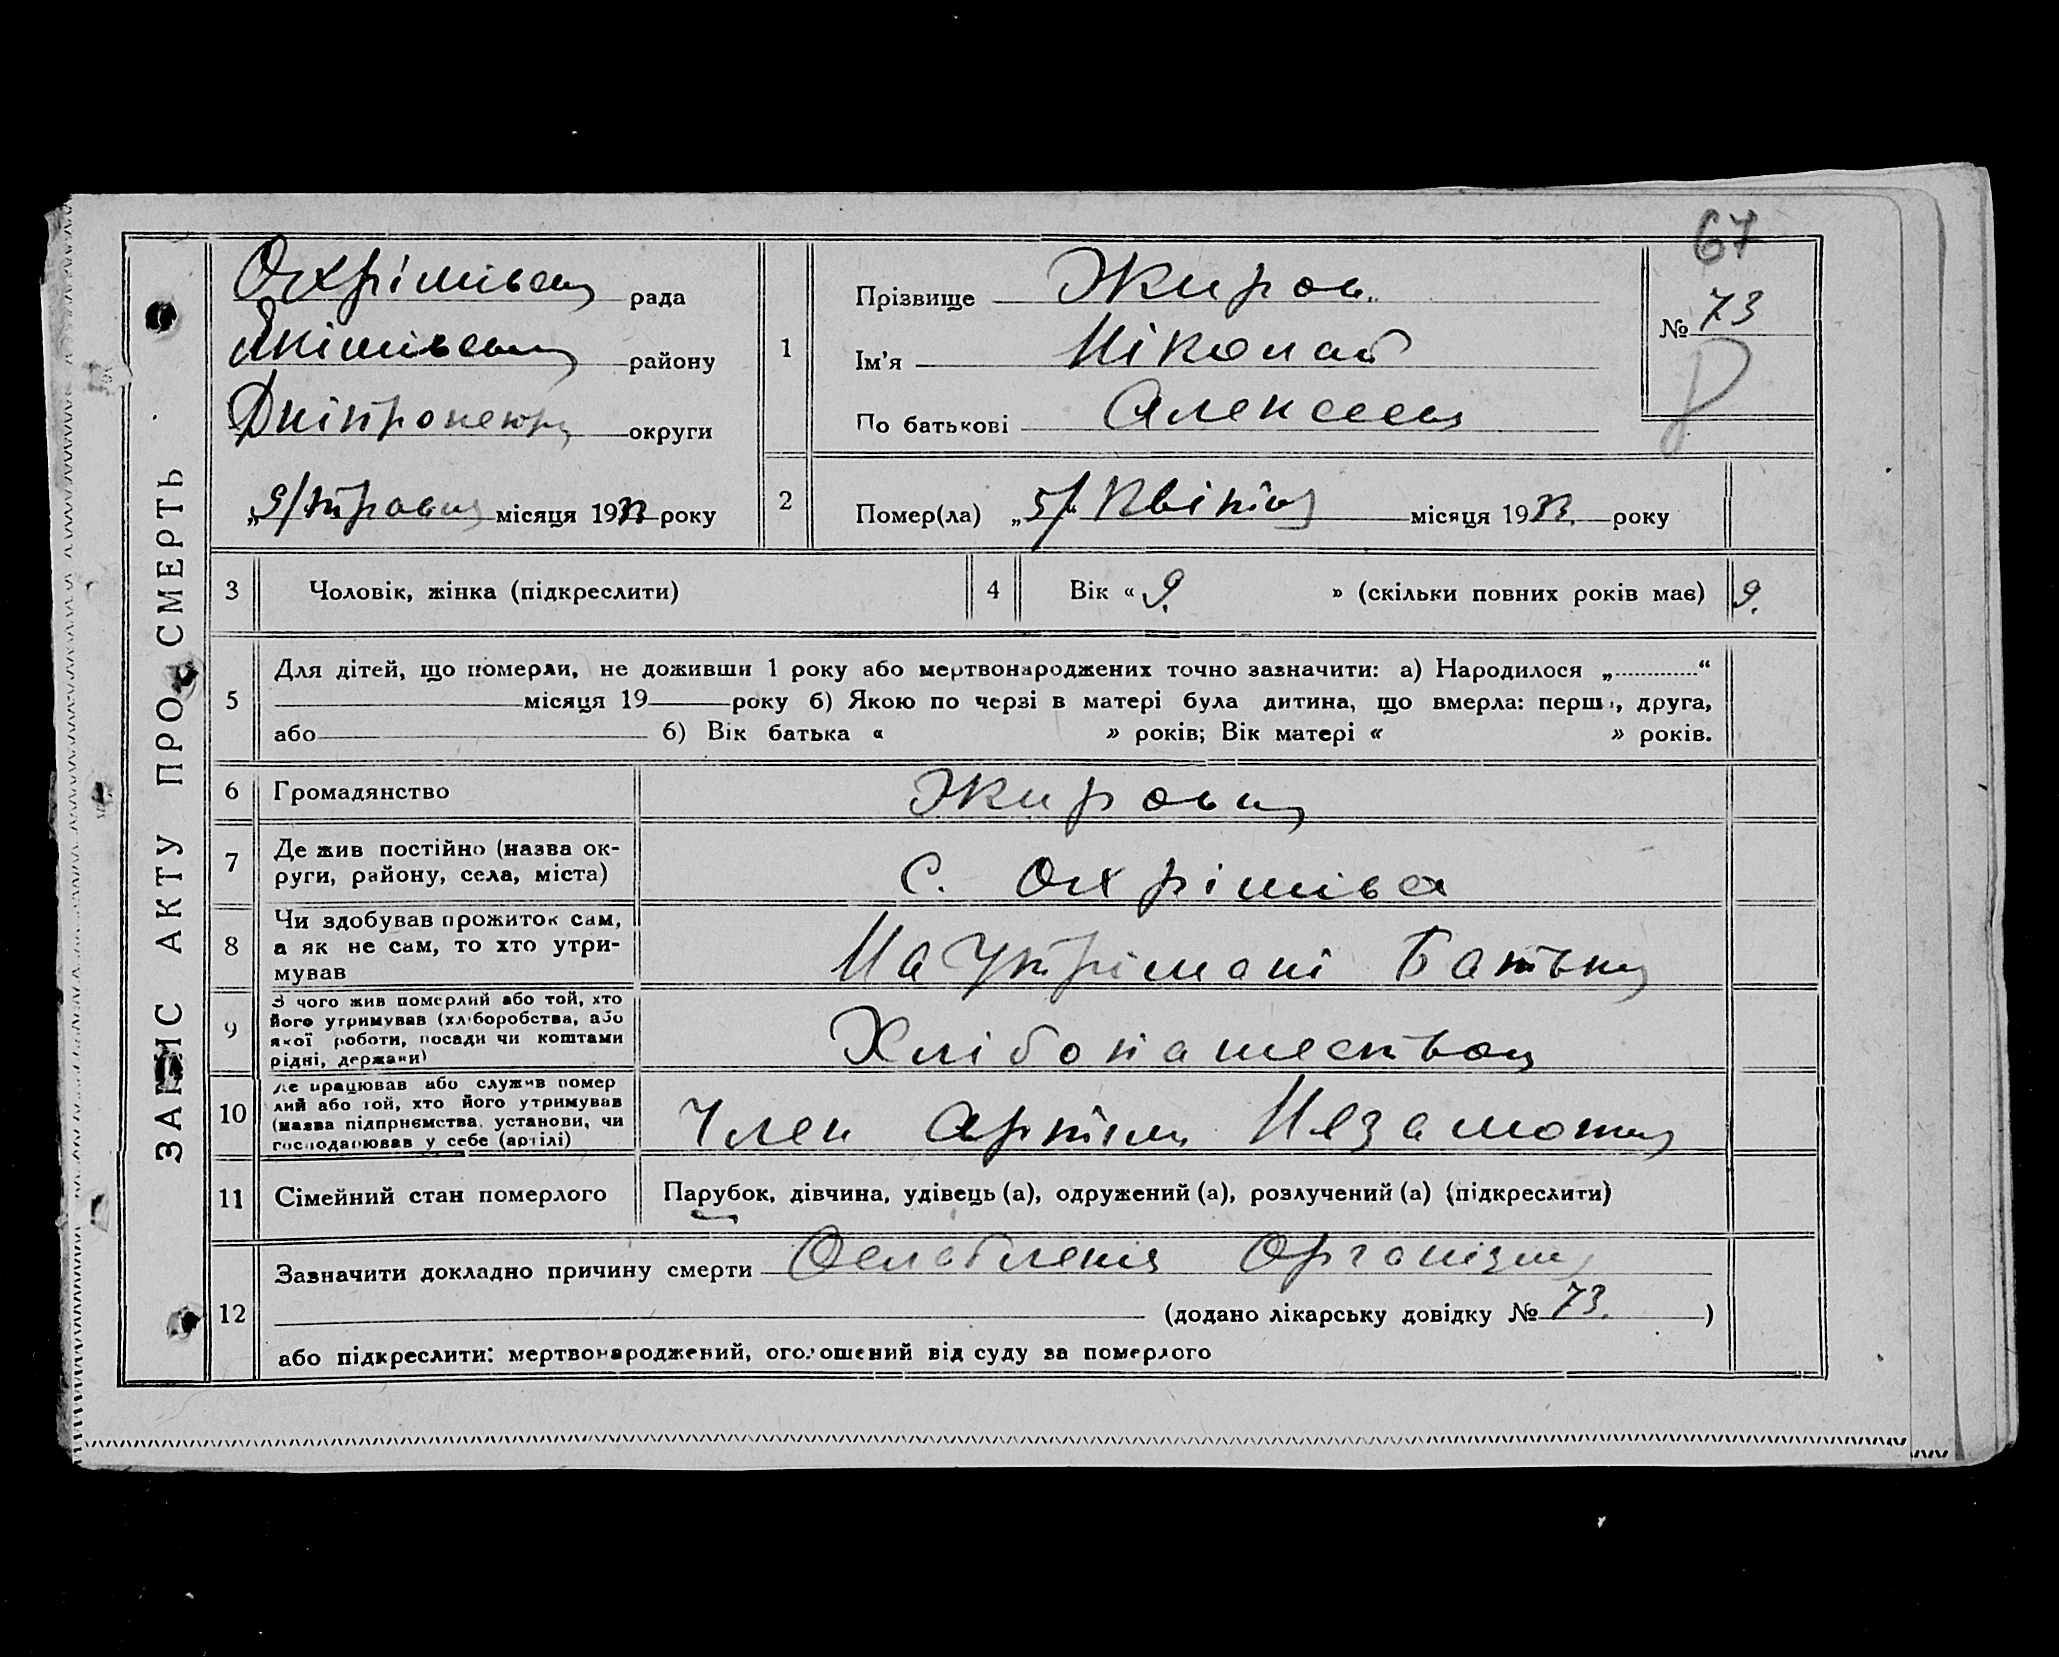 67
ЗАПИС АКТУ ПРО СМЕРТЬ
Охрімівськ рада
Якімівськ району
Дніпропетр округи
„9/травня місяця 1933 року
1
Прізвище Жиров
Ім'я Ніколай
По батькові Алексеев
№ 73
2
Помер(ла) „5/“ Квітня місяця 1933. року
3 Чоловік, жінка (підкреслити)
4 Вік « 9. » (скільки повних років має) 9.
5
Для дітей, що померли, не доживши 1 року або мертвонароджених точно зазначити: а) Народилося „.............“
місяця 19 року б) Якою по черзі в матері була дитина, що вмерла: перша, друга,
або б) Вік батька « » років; Вік матері « » років.
6 Громадянство
7 Де жив постійно (назва ок-
руги, району, села, міста) С. Охрімівка
8 Чи здобував прожиток сам,
а як не сам, то хто утри-
мував На Утрімані Батьку
9 З чого жив померлий або той, хто
його утримував (хліборобства, або
якої роботи, посади чи коштами
рідні, держави) Хлібопашеством
10 Де працював або служив помер
лий або той, хто його утримував
(назва підприємства, установи, чи
господарював у себе (артілі) Член Артіли Незаможник
11 Сімейний стан померлого Парубок, дівчина, удівець (а), одружений (а), розлучений (а) (підкреслити)
12
Зазначити докладно причину смерти Ослабленія Організму
(додано лікарську довідку № 73. )
або підкреслити: мертвонароджений, оголошений від суду за померлого